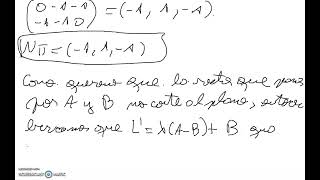 (0 -1 -1
-1 -1 0) = (-1, 1, -1)
N_Π = (-1, 1, -1)
Como queremos que la recta que pasa
por A y B no corte al plano, entonces
buscamos que L' = λ(A-B) + B que